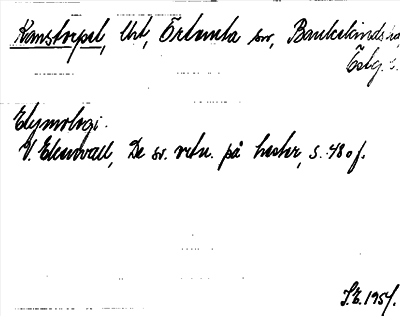 Ramstorpet, Urt, Örtomta sn, Bankekinds hd
Östg. l.
Etymologi.
V. Ekenvall, De sv. ortn. på hester, s. 48 o f.
S.E. 1957.